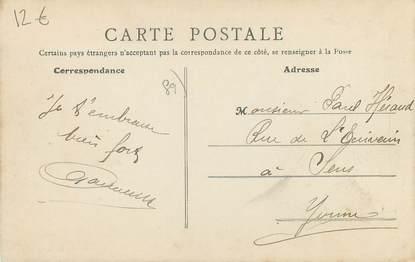 12 €
CARTE POSTALE
Certains pays étrangers n'acceptant pas la correspondance de ce côté, se renseigner à la Poste
Correspondance
Adresse
89
Je t'embrasse
bien fort
Monsieur Paul Héraud
Rue de
à Sens
Yonne